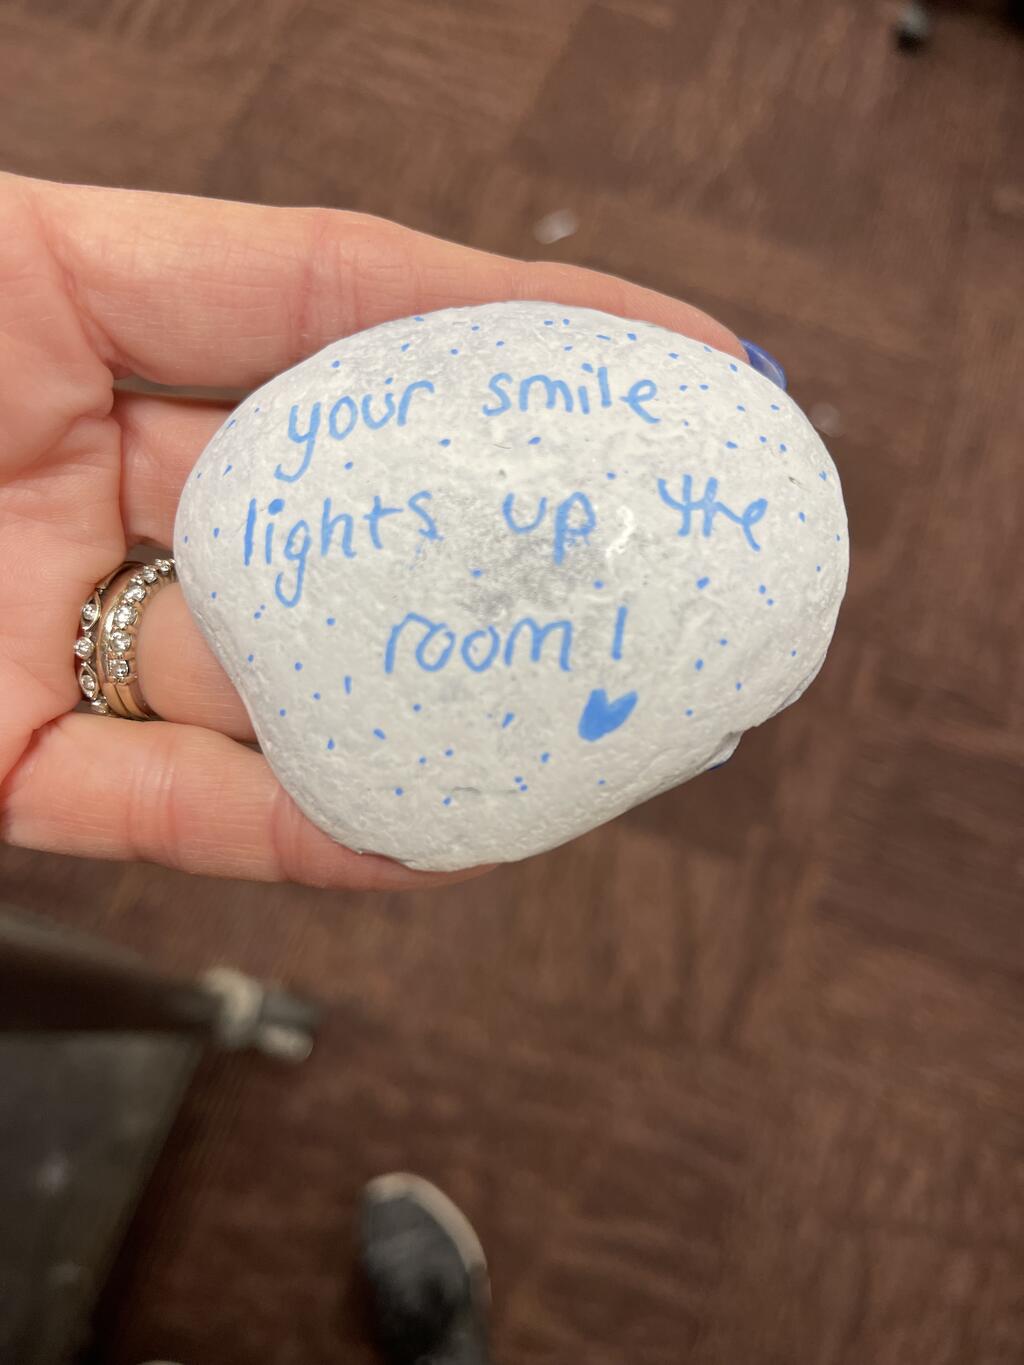 your smile
lights up the
room!